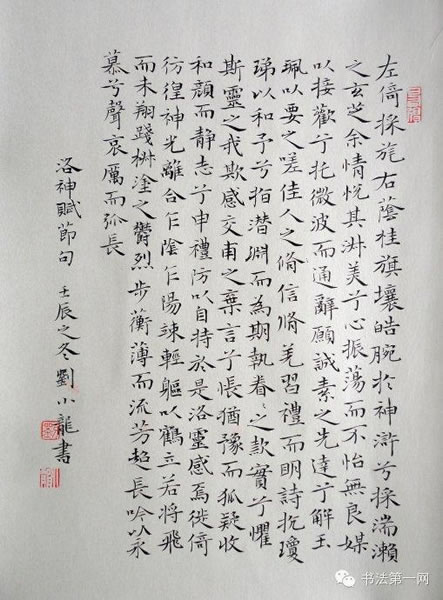 左倚採旄右蔭桂旗壤皓腕於神滸兮採湍瀨
之玄芝余情悅其淑美兮心振蕩而不怡無良媒
以接歡兮托微波而通辭願誠素之先達兮解玉
珮以要之嗟佳人之脩信脩羌習禮而明詩抗瓊
珶以和予兮指潛淵而為期執眷〻之款實兮懼
斯靈之我欺感交甫之棄言兮悵猶豫而狐疑收
和顏而靜志兮申禮防以自持於是洛靈感焉徙倚
彷徨神光離合乍陰乍陽竦輕軀以鶴立若將飛
而未翔踐椒塗之鬱烈步蘅薄而流芳超長吟以永
慕兮聲哀厲而弥長
洛神賦節句 壬辰之冬劉小龍書
书法第一网